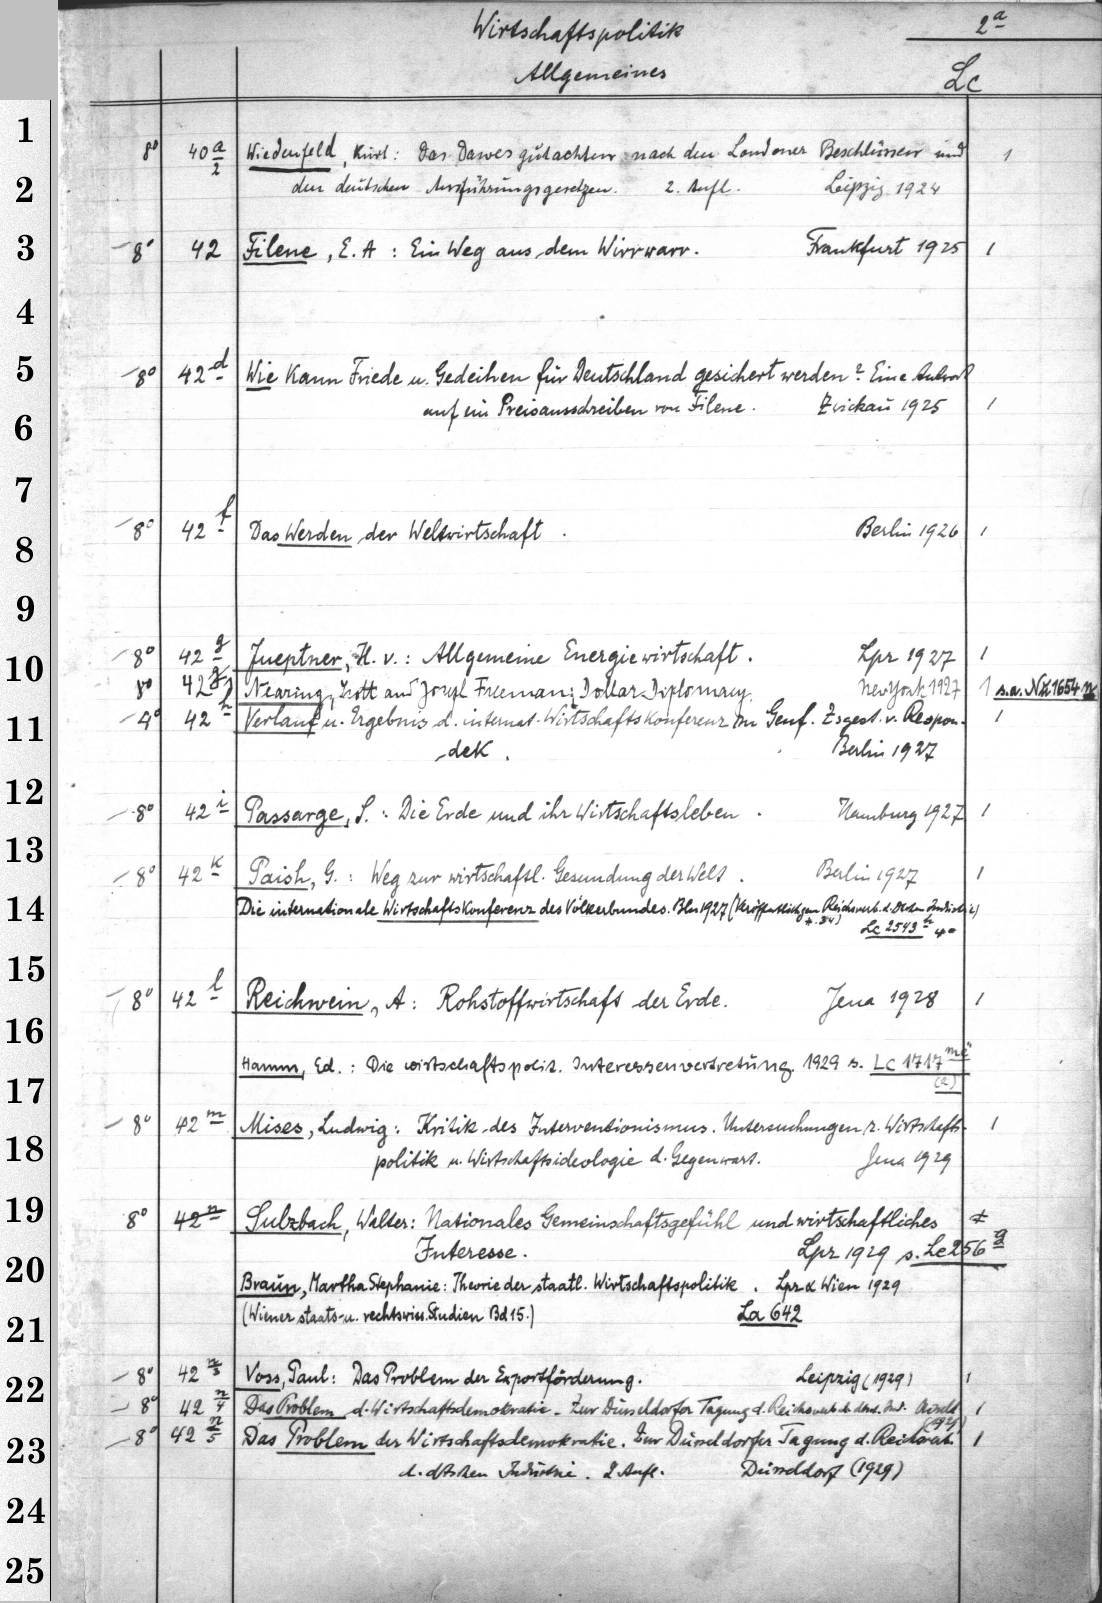 Wirtschaftspolitik 2a
Allgemeines Lc
1
8° 40 a/2 Wiedenfeld, Kurt: Das Dawesgutachten nach den Londoner Beschlüssen und 1
2 den deutschen Ausführungsgesetzen. 2. Aufl. Leipzig 1924
3 8° 42 Filene, E. A: Ein Weg aus dem Wirrwarr. Frankfurt 1925 1
4
5 8° 42 d Wie kann Friede u. Gedeihen für Deutschland gesichert werden? Eine Antwort
auf ein Preisausschreiben von Filene. Zwickau 1925 1
6
7
8° 42 f Das Werden der Weltwirtschaft. Berlin 1926 1
8
9
10 8° 42 g Jueptner, H. v.: Allgemeine Energiewirtschaft. Lpz 1927 1
8° 42 Nearing, Scott and Joseph Freeman: Dollar Diplomacy. New York 1927 1 s.a. 1654 n
11 4° 42 h Verlauf u. Ergebnis d. internat. Wirtschaftskonferenz in Genf. Zsgest. v. Respon-
dek. Berlin 1927
12
8° 42 i Passarge, S.: Die Erde und ihr Wirtschaftsleben. Hamburg 1927 1
13
8° 42 k Paish, G.: Weg zur wirtschaftl. Gesundung der Welt. Berlin 1927 1
14 Die internationale Wirtschaftskonferenz des Völkerbundes. Bln 1927 (Veröffentlichgen Reichsverb. d. Dtschn Industrie)
Lc 2543 h 4°
15
8° 42 l Reichwein, A: Rohstoffwirtschaft der Erde. Jena 1928 1
16
Hamm, Ed.: Die wirtschaftspolit. Interessenvertretung. 1929 s. Lc 1717 me
17 (2)
8° 42 m Mises, Ludwig: Kritik des Interventionismus. Untersuchungen z. Wirtschafts- 1
18 politik u. Wirtschaftsideologie d. Gegenwart. Jena 1929
19 8° 42 n Sulzbach, Walter: Nationales Gemeinschaftsgefühl und wirtschaftliches
Interesse. Lpz 1929 s. Le 256 g
20 Braun, Martha Stephanie: Theorie der staatl. Wirtschaftspolitik. Lpz & Wien 1929
(Wiener staats- u. rechtswiss. Studien Bd 15.) La 642
21
22 8° 42 n/3 Voss, Paul: Das Problem der Exportförderung. Leipzig (1929) 1
8° 42 n/4 Das Problem d. Wirtschaftsdemokratie. Zur Düsseldorfer Tagung d. Reichsverb. d. dtsch. Ind. 1
23 8° 42 n/5 Das Problem der Wirtschaftsdemokratie. Zur Düsseldorfer Tagung d. Reichsverb. 1
d. dtschen Industrie. 2. Aufl. Düsseldorf (1929)
24
25